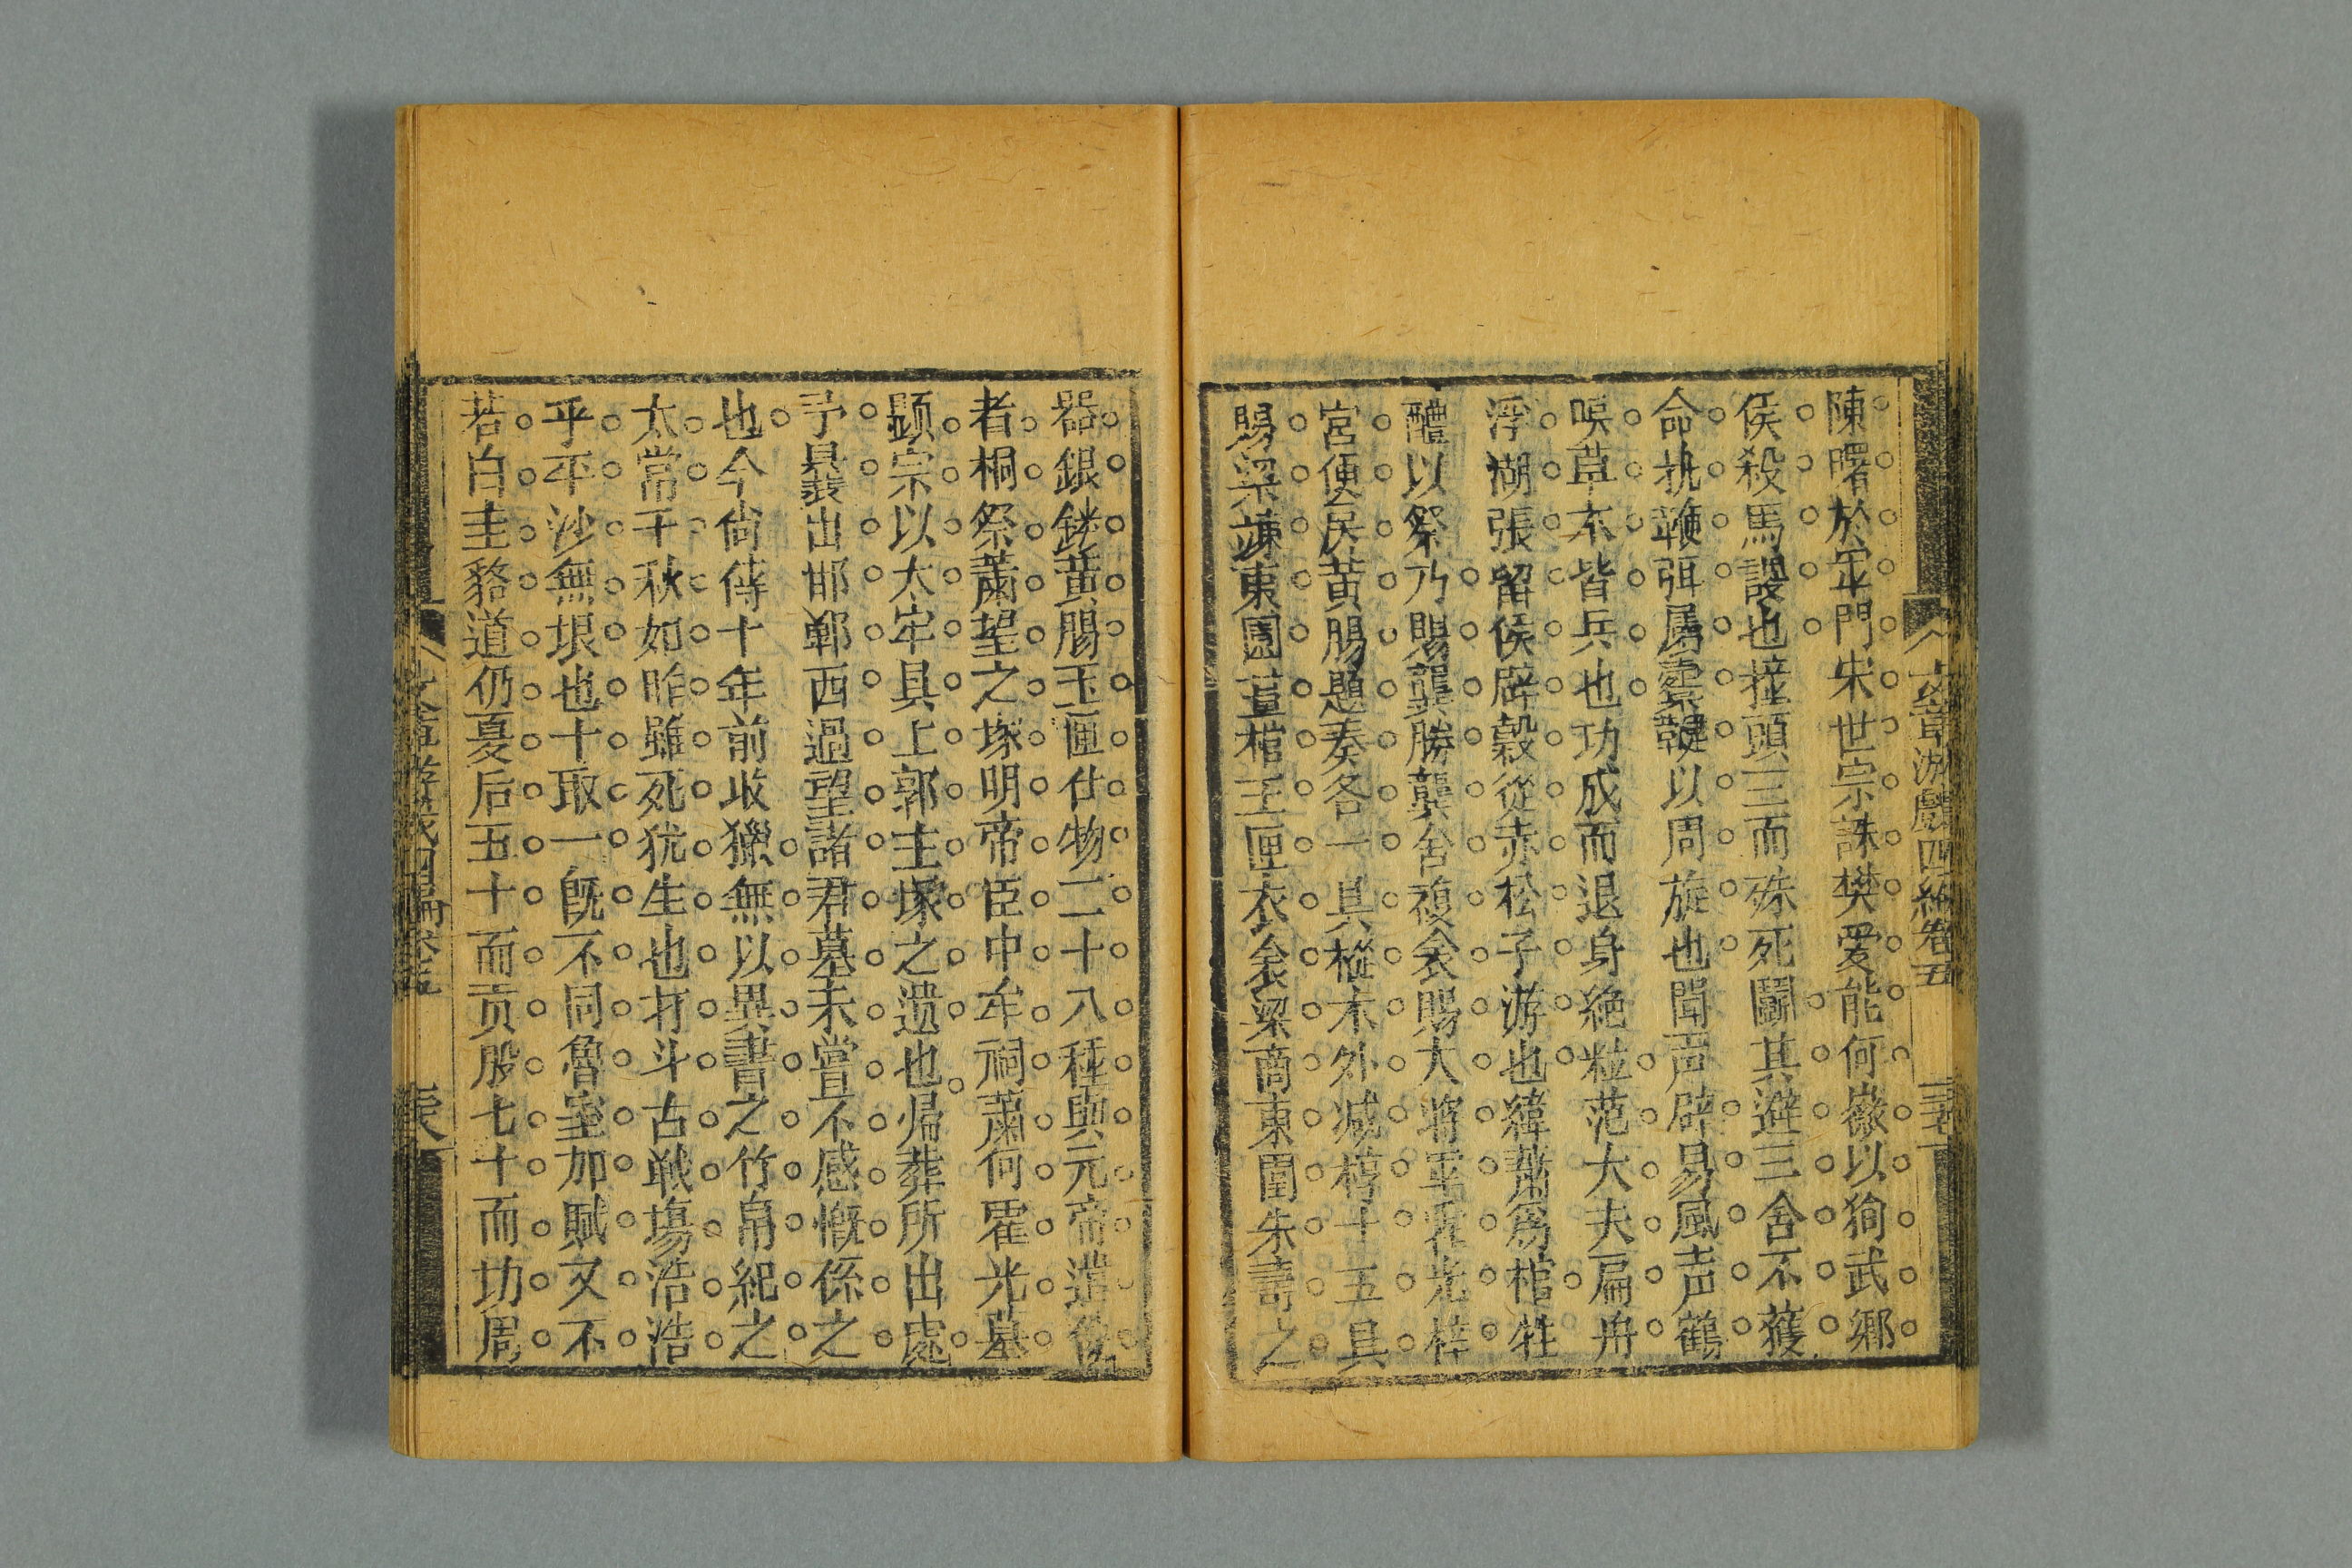 文章游戲四編卷五
陳曙於軍門宋世宗誅樊愛能何徽以狥武鄉
侯殺馬謖也撞頭三而殊死鬭其避三舍不獲
命執鞭弭屬櫜鞬以周旋也聞声辟易風声鶴
唳草木皆兵也功成而退身絶粒范大夫扁舟
浮湖張留侯辟穀從赤松子游也緯蕭爲棺牲
醴以祭乃賜龔勝龔舍複衾賜大將軍霍光梓
宮便房黃腸題奏各一具樅木外減椁十五具
賜梁竦東園畫棺玉匣衣衾梁商東園朱壽之
器銀鏤黃腸玉匣什物二十八種與元帝遣使
者桐祭蕭望之塚明帝臣中牟祠蕭何霍光墓
顕宗以太牢具上郭主塚之遗也帰葬所出處
予曩出邯鄲西過望諸君墓未嘗不感慨係之
也今尚待十年前收獵無以異書之竹帛紀之
太常千秋如昨雖死犹生也打斗古戦塲浩浩
乎平沙無垠也十取一旣不同魯室加賦又不
若白圭貉道仍夏后五十而贡殷七十而功周
文章游戲四編卷五